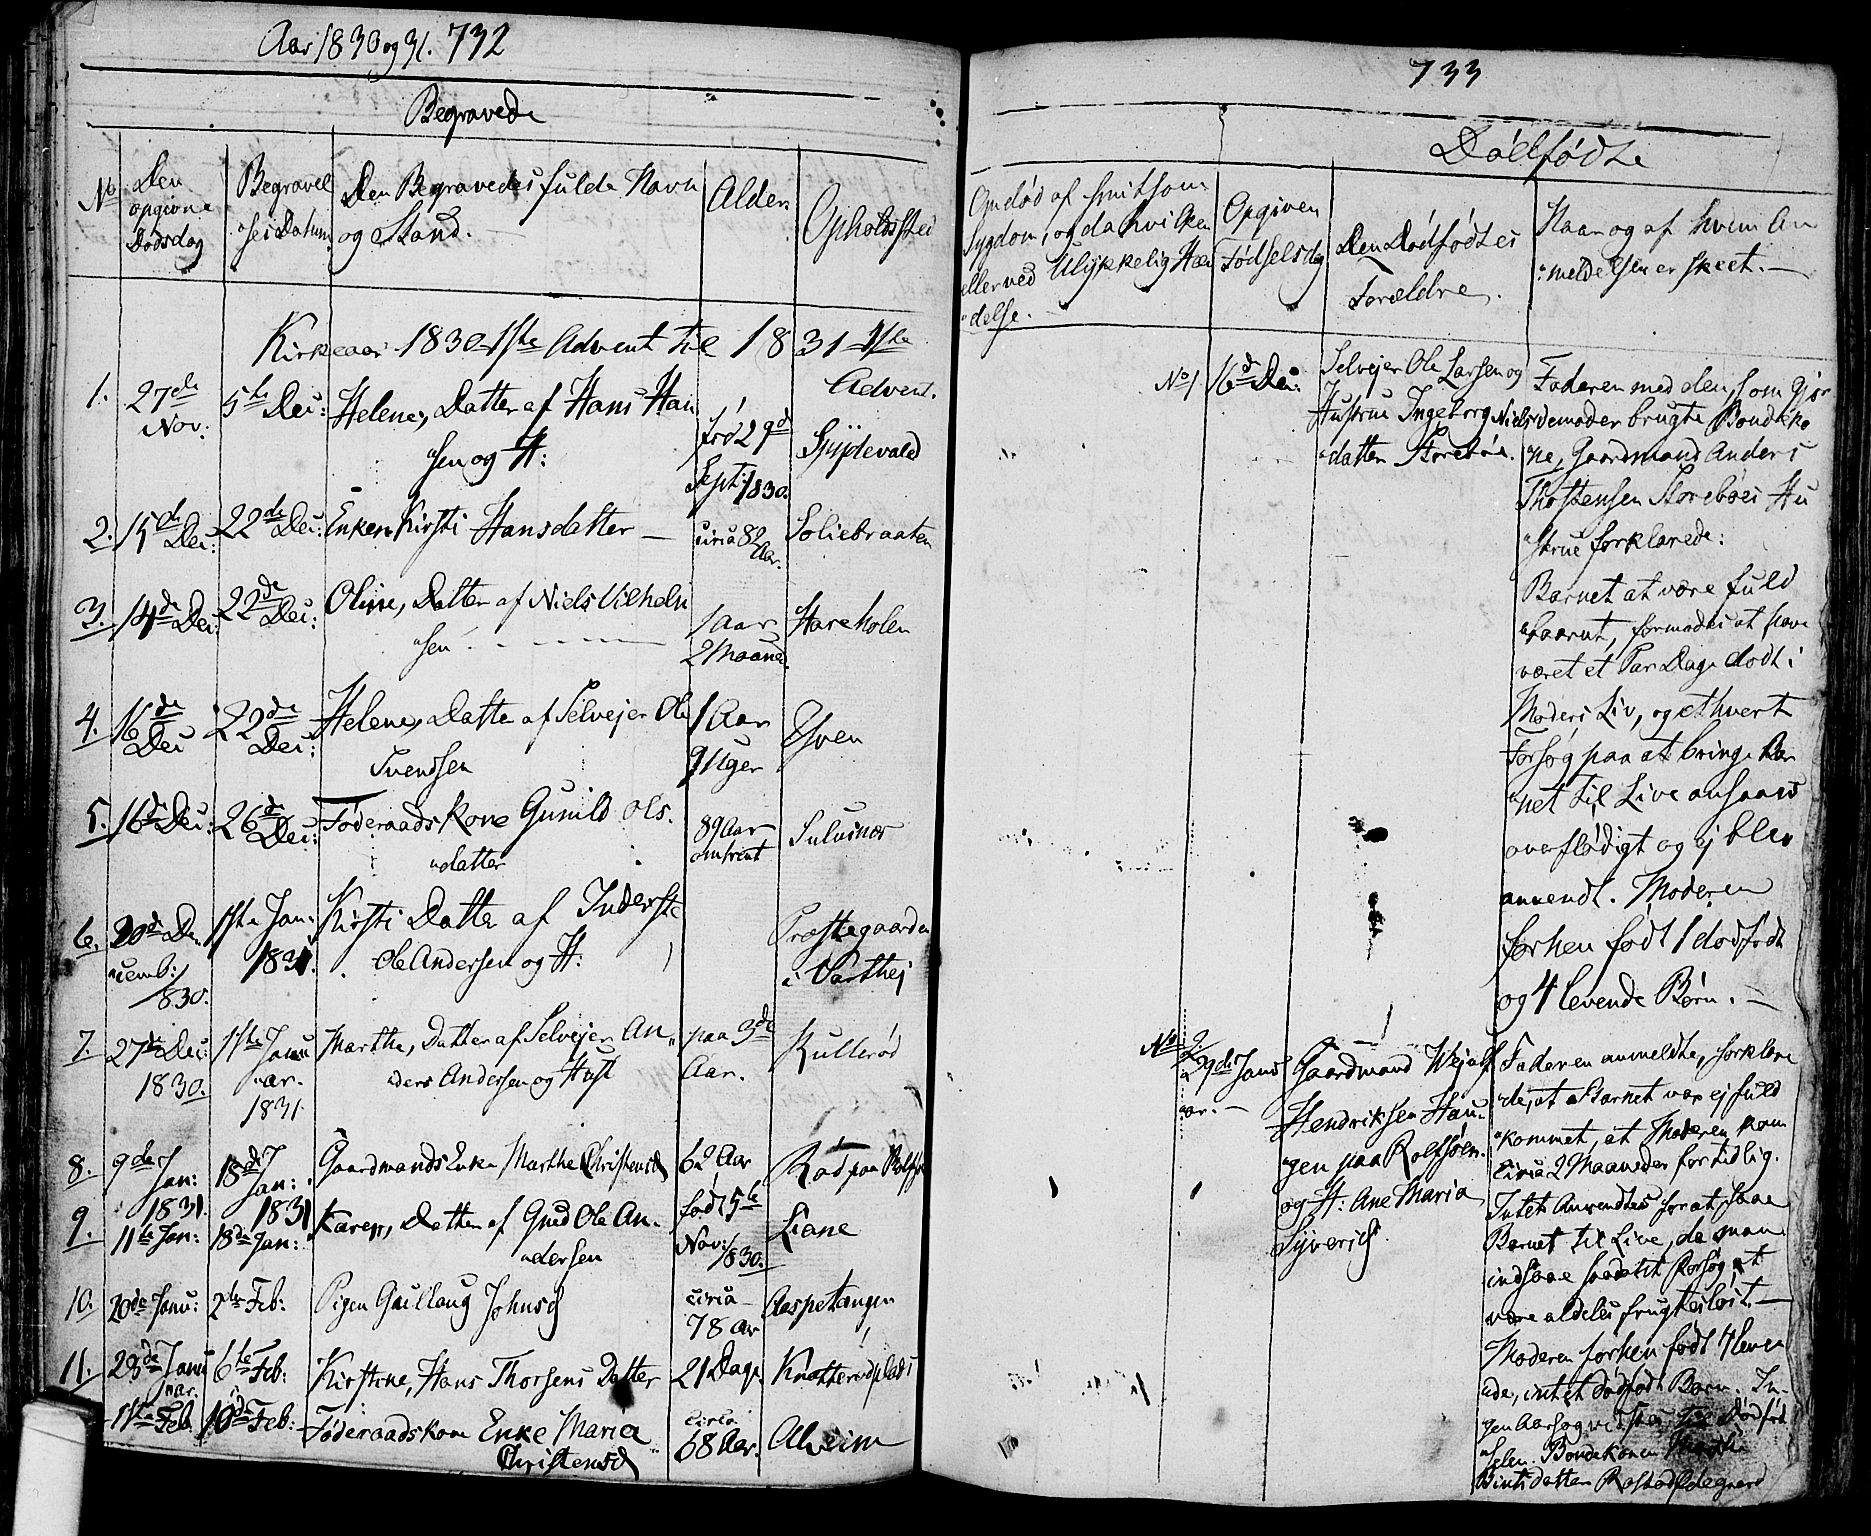 Aar 1830 og 31. 732
Begravede
No
Den opgivne Dødsdag
Begravel
"ses Datum
Den Begravedes fulde Navn
og Stand.
Alder
Opholdssted
Kirkeaar 1830 1ste Advent til 1831 1ste
Advent.
1. 27de Nov: 5te Dec: Helene, Datter af Hans Han
"sen og H:
fød 29de Sept: 1830. Spydevold
2. 15de Dec: 22de Dec: Enken Kirsti Hansdatter — circa 82 Aar. Soliebraaten
3. 14de Dec: 22de Dec: Oline, Datter af Niels Vilhelm
"sen
1 Aar 2 Maaned. Hareholen
4. 16de Dec 22de Dec: Helene, Datter af Selvejer Ole
Svendsen
1 Aar 9 Uger Yven
5. 16de Dec: 26de Dec: Føderaadskone Gunild Ols.
"datter
89 Aar omtrent
6. 20de De
"cemb: 1830.
1ste Jan: 1831. Kirsti Datter af Inderste
Ole Andersen og H:
Præstegaarden
i Varthej
7. 27de Dec: 1830. 1ste Janu
"ar. 1831.
Marthe, Datter af Selvejer An"
"ders Andersen og Hust
paa 3de Aar. Kullerød
8. 9de Jan: 1831. 18de Jan: 1831 Gaardmands Enke Marthe Christensd 62 Aar Rød paa Rolfsø
9. 11te Jan: 18de Jan: Karen, Datter af Ole An.
"dersen
født 5te Nov: 1830. Liane
10. 20de Janu: 2den Feb: Pigen Gullaug Johnsd circa 78 ar Aaspetangen
11. 28de Janu
"ar.
6te Feb: Kirstine, Hans Thorsens Datter 21 Dage
1ste Feb 10de Feb: Føderaadskone Enke Maria
Christensd
circa 68 Aar. Alvim
733
Dødfødte
Om død af smitsom
Sygdom, og da hvilken
eller ved Ulykkelig Hæn
"delse.
Opgiven
Fødselsdag
Den Dødfødtes
Forældre.
Naar og af hvem An
"meldelsen er skeet. —
No 1 16de Dec: Selvejer Ole Larsen og
Hustrue Ingeborg Niels
"datter Storebøe.
Faderen med den, som Gjor
"demoder brugte Bondeko
"ne, Gaardmand Anders
Thostensen Storebøes Hu
"strue forklarede:
Barnet at være fuld
"baaret, formodes at have
været et Par Dage dødt i
Moders Liv, og ethvert
Forsøg paa at bringe Bar
"net til Live ansaaes
overflødigt og ej blev
anvendt. Moderen
forhen født 1 dødfødt
og 4 levende Børn. —
No 2. 29de Janu
"ar. —
Gaardmand
Hendriksen Hau
"gen paa Rolfsøen.
og H: Ane Maria
Syversd.
Faderen anmeldte, forklare
"de, at Barnet var ej fuld
"kommet, at Moderen kom
circa 2 Maaneder for tidlig.
Intet Anvendtes for at faae
Barnet til Live, da man
indsaae saadant Forsøg at
være aldeles frugtesløst. —
Moderen forhen født 4 leven
"de, intet dødfødt Barn. In
"gen Aarsag vidstes til Dødfød
"selen. Bondekonen Marthe